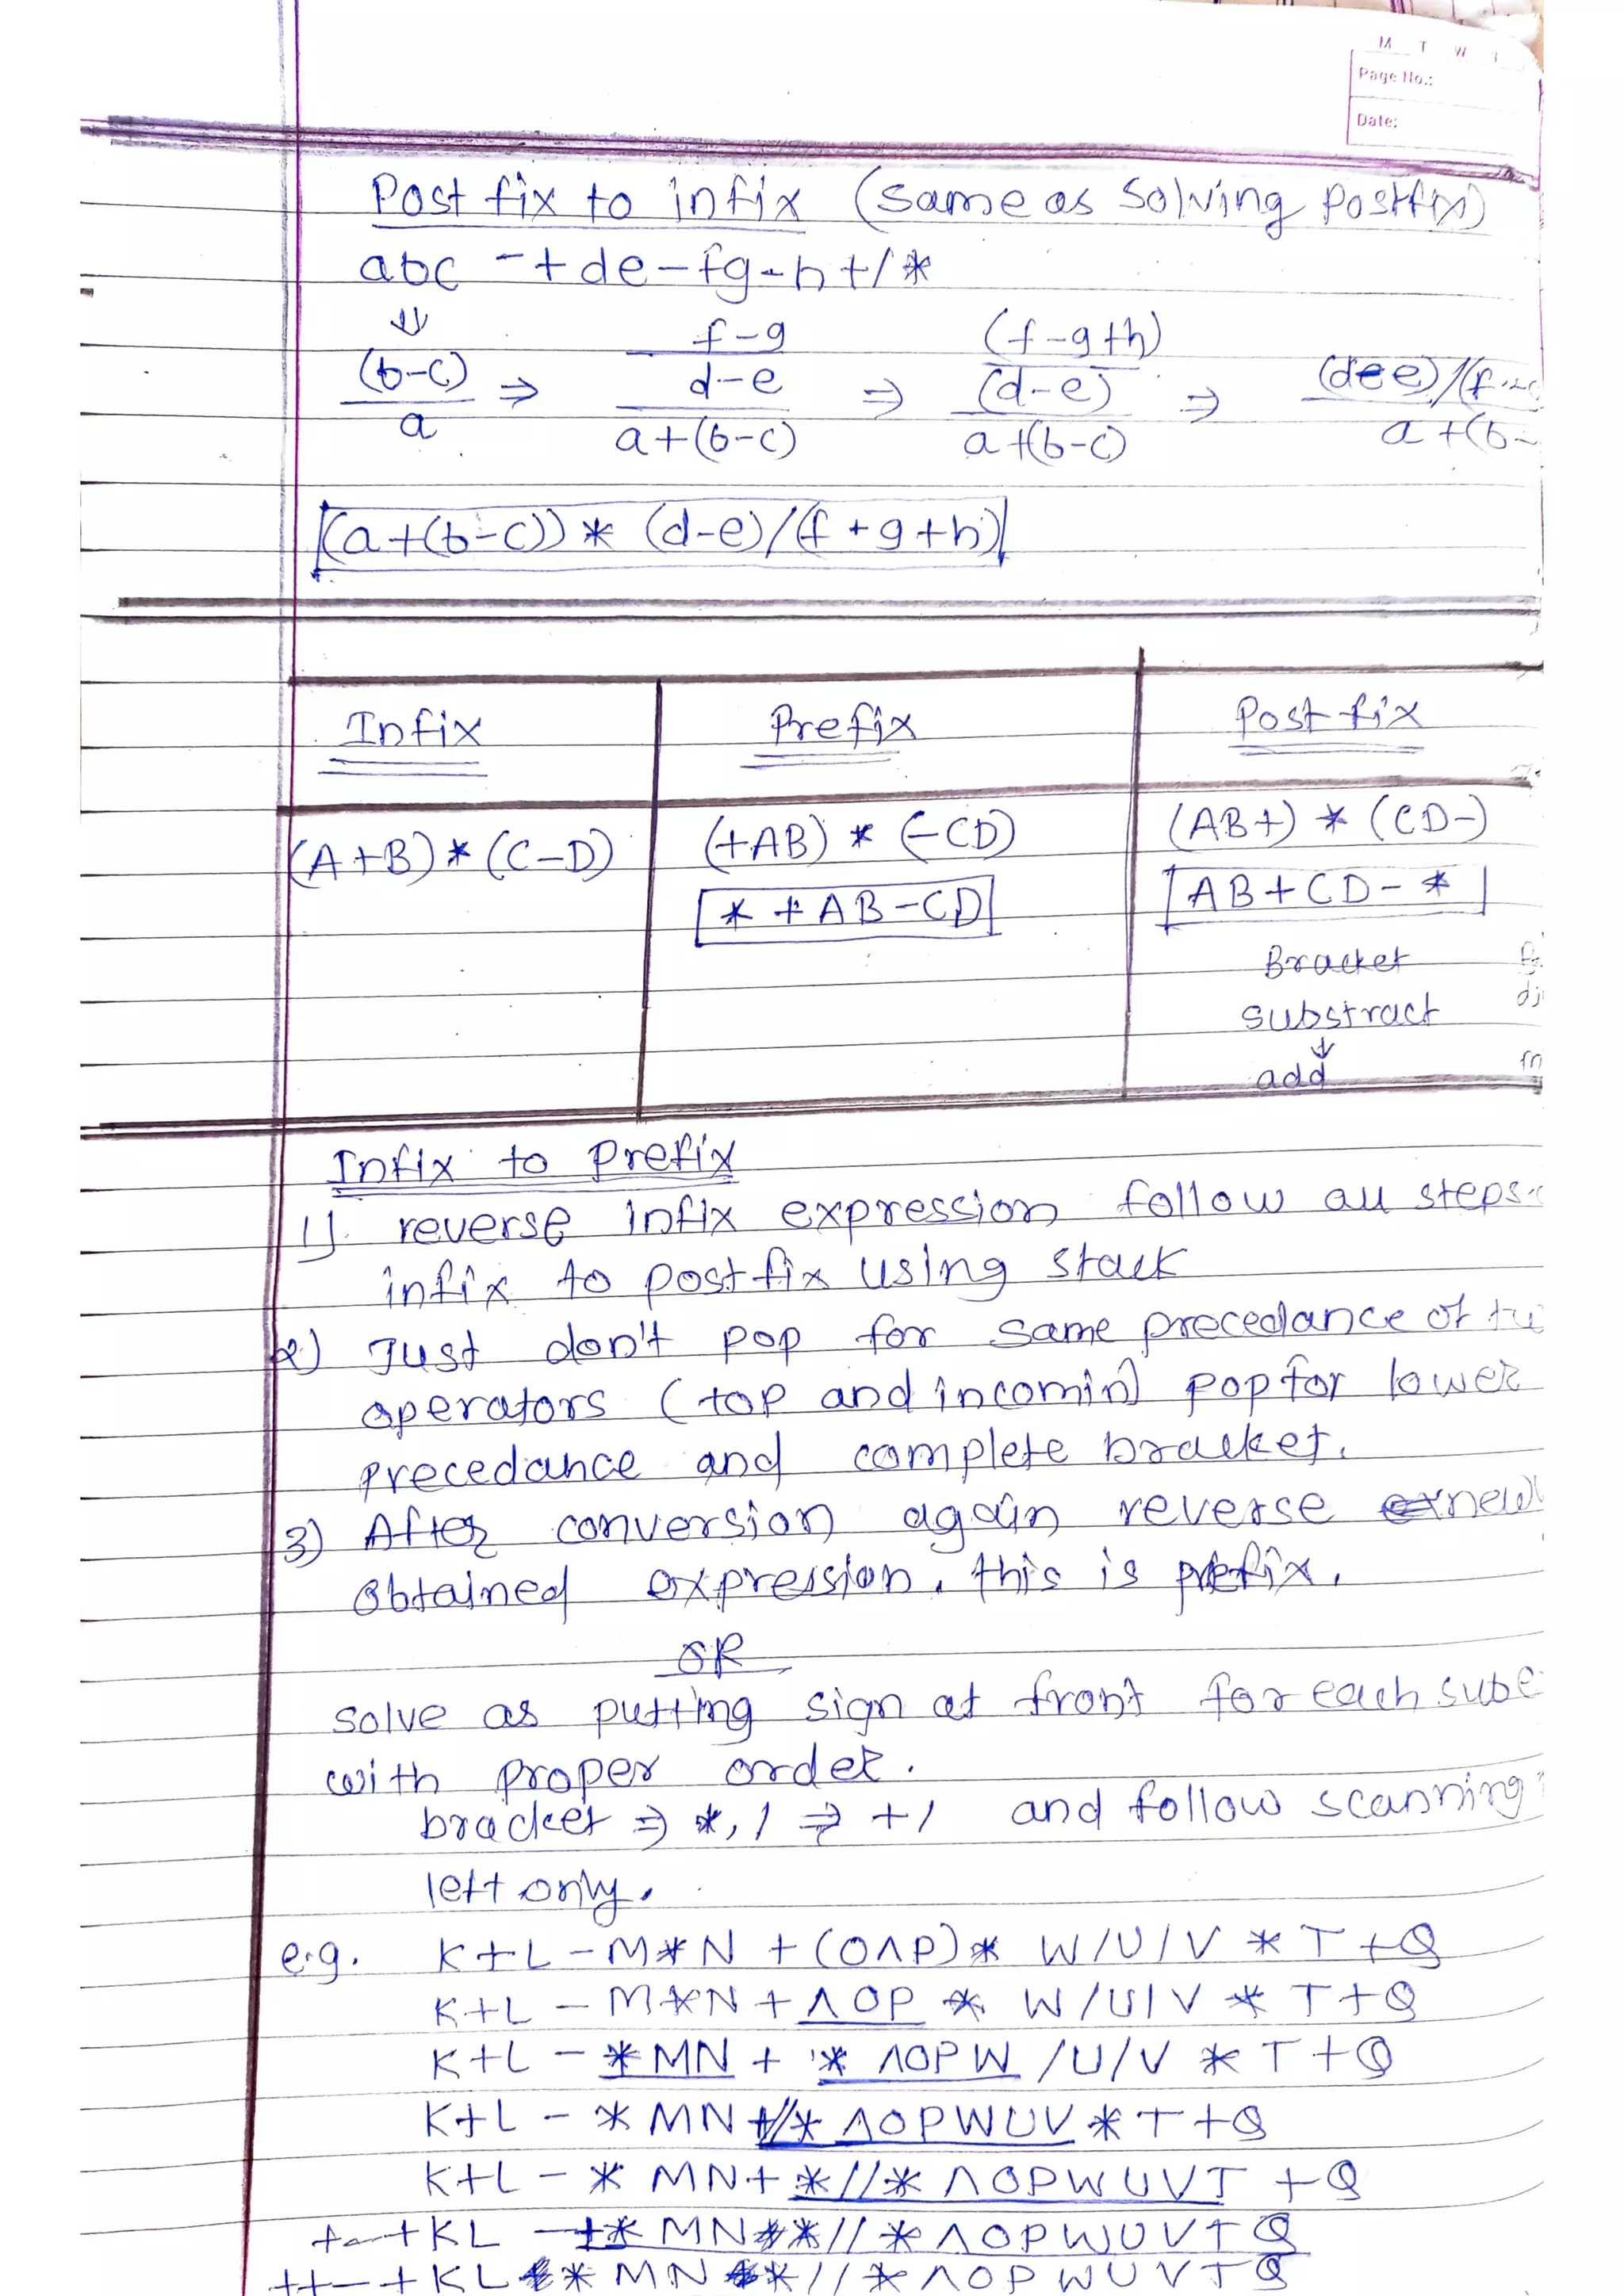 M T W
Page No.:
Date:
Post fix to infix (same as solving postfix)
abc -+de-fg-h+/*
⇓
(b-c) ⇒ f-g ⇒ (f-g+h) ⇒ (d-e)/(f-
a d-e (d-e) a+(b-
a+(b-c) a+(b-c)
(a+(b-c))* (d-e)/(f+g+h)
Infix Prefix Post fix
(A+B)*(C-D) (+AB) * (-CD) (AB+) * (CD-)
* +AB-CD AB+CD-*
Bracket
substract
↓
add
Infix to prefix
1) reverse infix expression follow all steps
infix to postfix using stack
2) Just don't pop for same precedance of
operators (top and incomin) pop for lower
precedance and complete bracket.
3) After conversion again reverse new
obtained expression, this is prefix.
OR
solve as putting sign at front for each sube
with proper order.
bracket ⇒ *, / ⇒ +/ and follow scanning
left only.
e.g. K+L-M*N +(O^P)* W/U/V *T+Q
K+L - M*N + ^OP * W/U/V * T+Q
K+L - *MN + * ^OPW /U/V * T+Q
K+L - * MN+//* ^OPWUV *T+Q
K+L - * MN+ *//* ^OPWUVT +Q
+-+KL -+* MN *//* ^OPWUVT Q
++-+KL * MN *//* ^OPWUVTQ